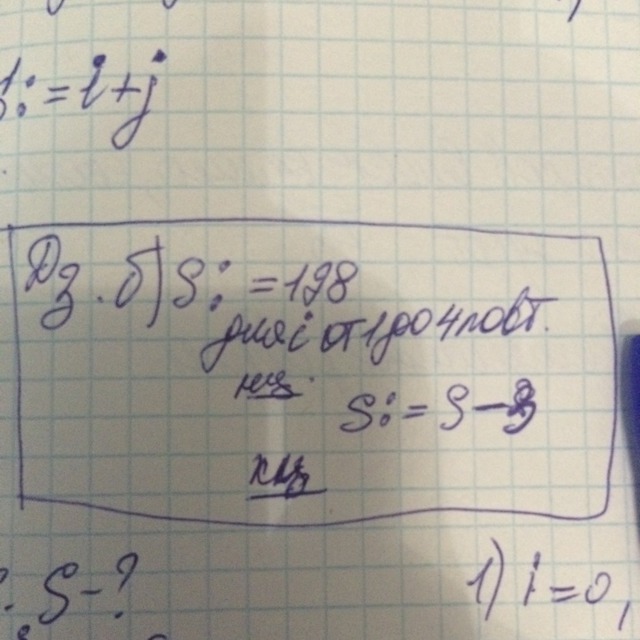 := i+j
Дз. б) S:=128
для i от 1 до 4 повт.
нц
S:= S-8
кц
S-?
1) i=0,